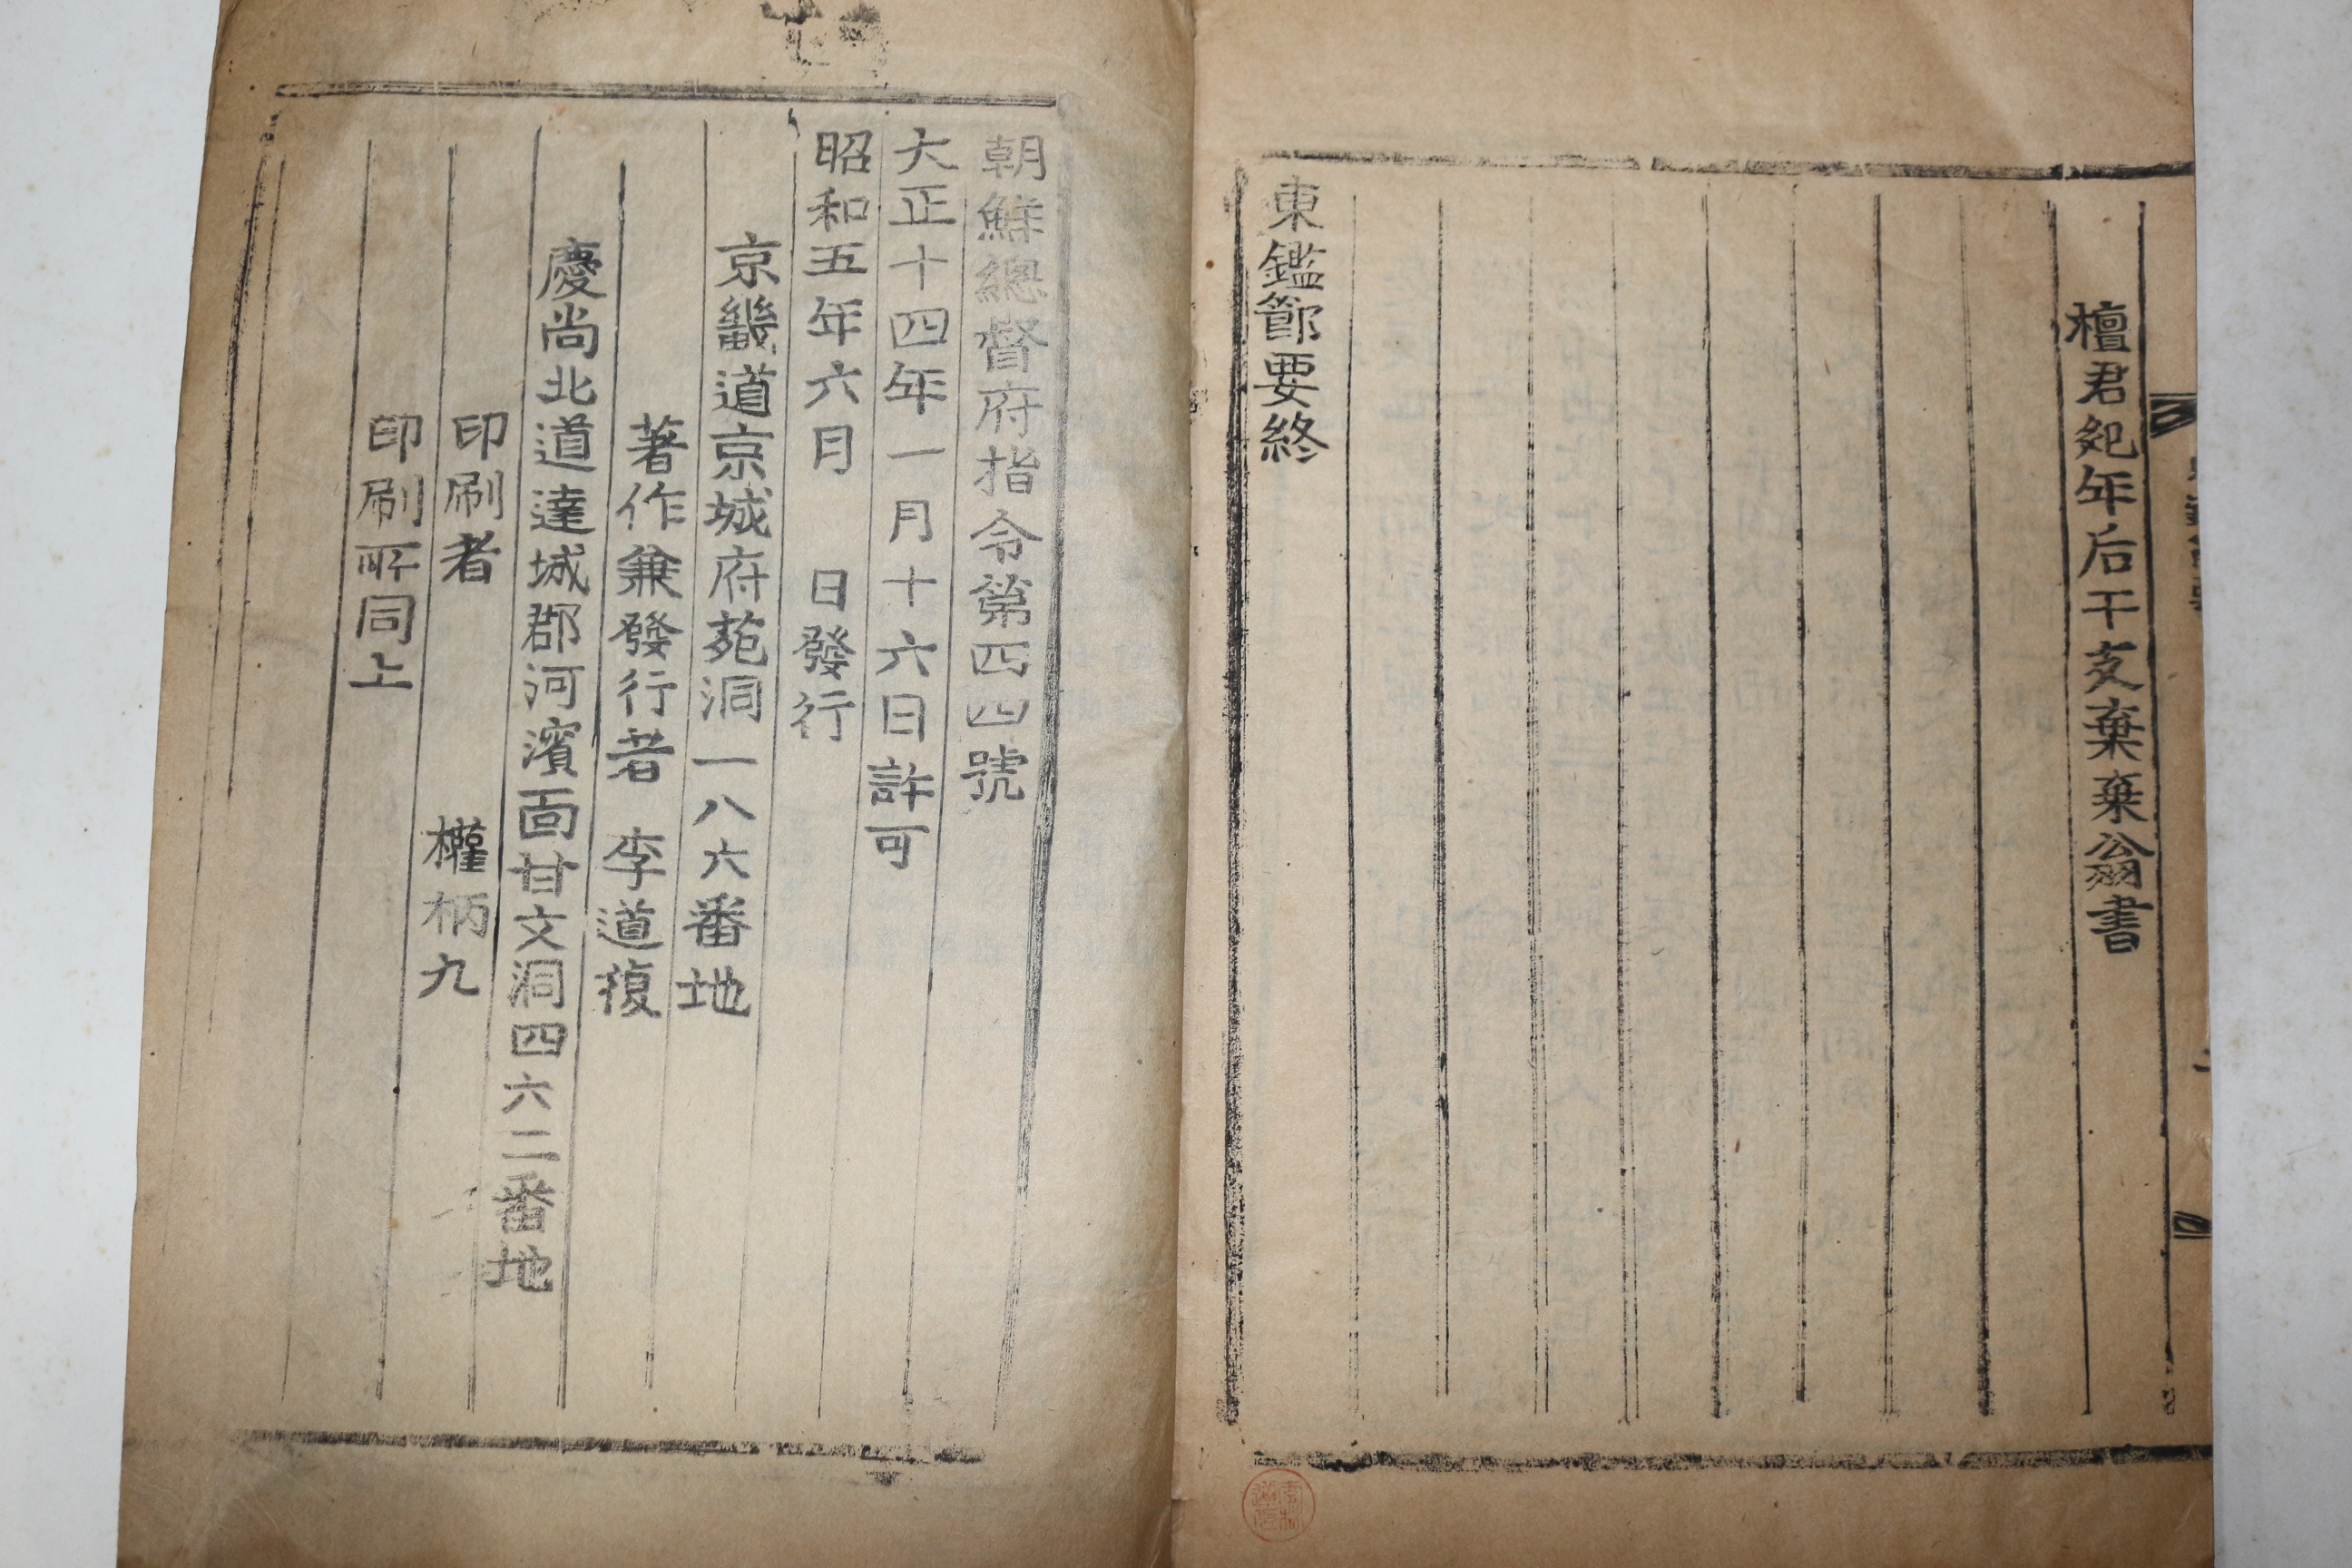 檀君紀年后干支棄棄翁書
東鑑節要終
朝鮮總督府指令第四四號
大正十四年一月十六日許可
昭和五年六月 日發行
京畿道京城府苑洞一八六番地
著作兼發行者 李道復
慶尚北道達城郡河濱面甘文洞四六二番地
印刷者 權柄九
印刷所同上